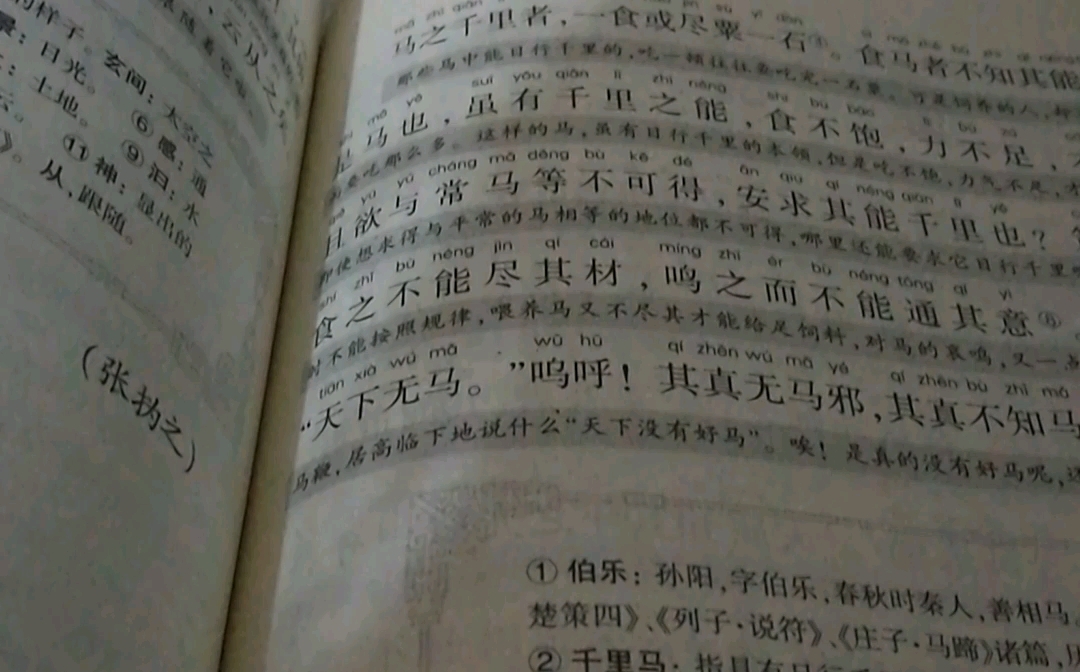 的样子。玄间：太空之
景：日光。⑥感：通
土：土地。⑨汩：水
云。⑪神：显出的
》。从，跟随。
（张㧑之）
mǎ zhī qiān
马之千里者，一食或尽粟一石。食马者不知其能
那些马中能日行千里的，吃一顿往往要吃完一石粟。
mǎ yě suī yǒu qiān lǐ zhī néng shí bù bǎo lì bù zú
是马也，虽有千里之能，食不饱，力不足，
要吃那么多。这样的马，虽有日行千里的本领，但是吃不饱，力气不足，
yù yǔ cháng mǎ děng bù kě dé ān qiú qí néng qiān lǐ yě
且欲与常马等不可得，安求其能千里也？
即使想求得与平常的马相等的地位都不可得，哪里还能要求它日行千里
shí zhī bù néng jìn qí cái míng zhī ér bù néng tōng qí yì
食之不能尽其材，鸣之而不能通其意⑥
时不能按照规律，喂养马又不尽其才能给足饲料，对马的哀鸣，又一点
tiān xià wú mǎ wū hū qí zhēn wú mǎ yé qí zhēn bù zhī mǎ
“天下无马。”呜呼！其真无马邪，其真不知马
马鞭，居高临下地说什么“天下没有好马”。唉！是真的没有好马呢，还
① 伯乐：孙阳，字伯乐，春秋时秦人，善相马。
楚策四》、《列子·说符》、《庄子·马蹄》诸篇，
② 千里马：指具有日行